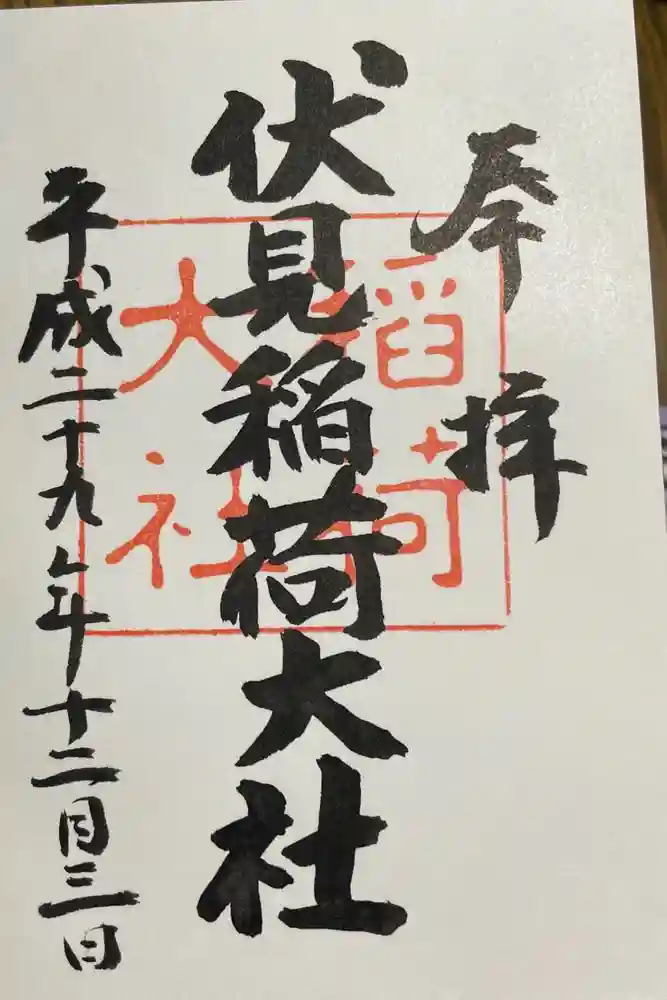 奉拝
伏見稲荷大社
平成二十九年十二月三日
稲荷
大社